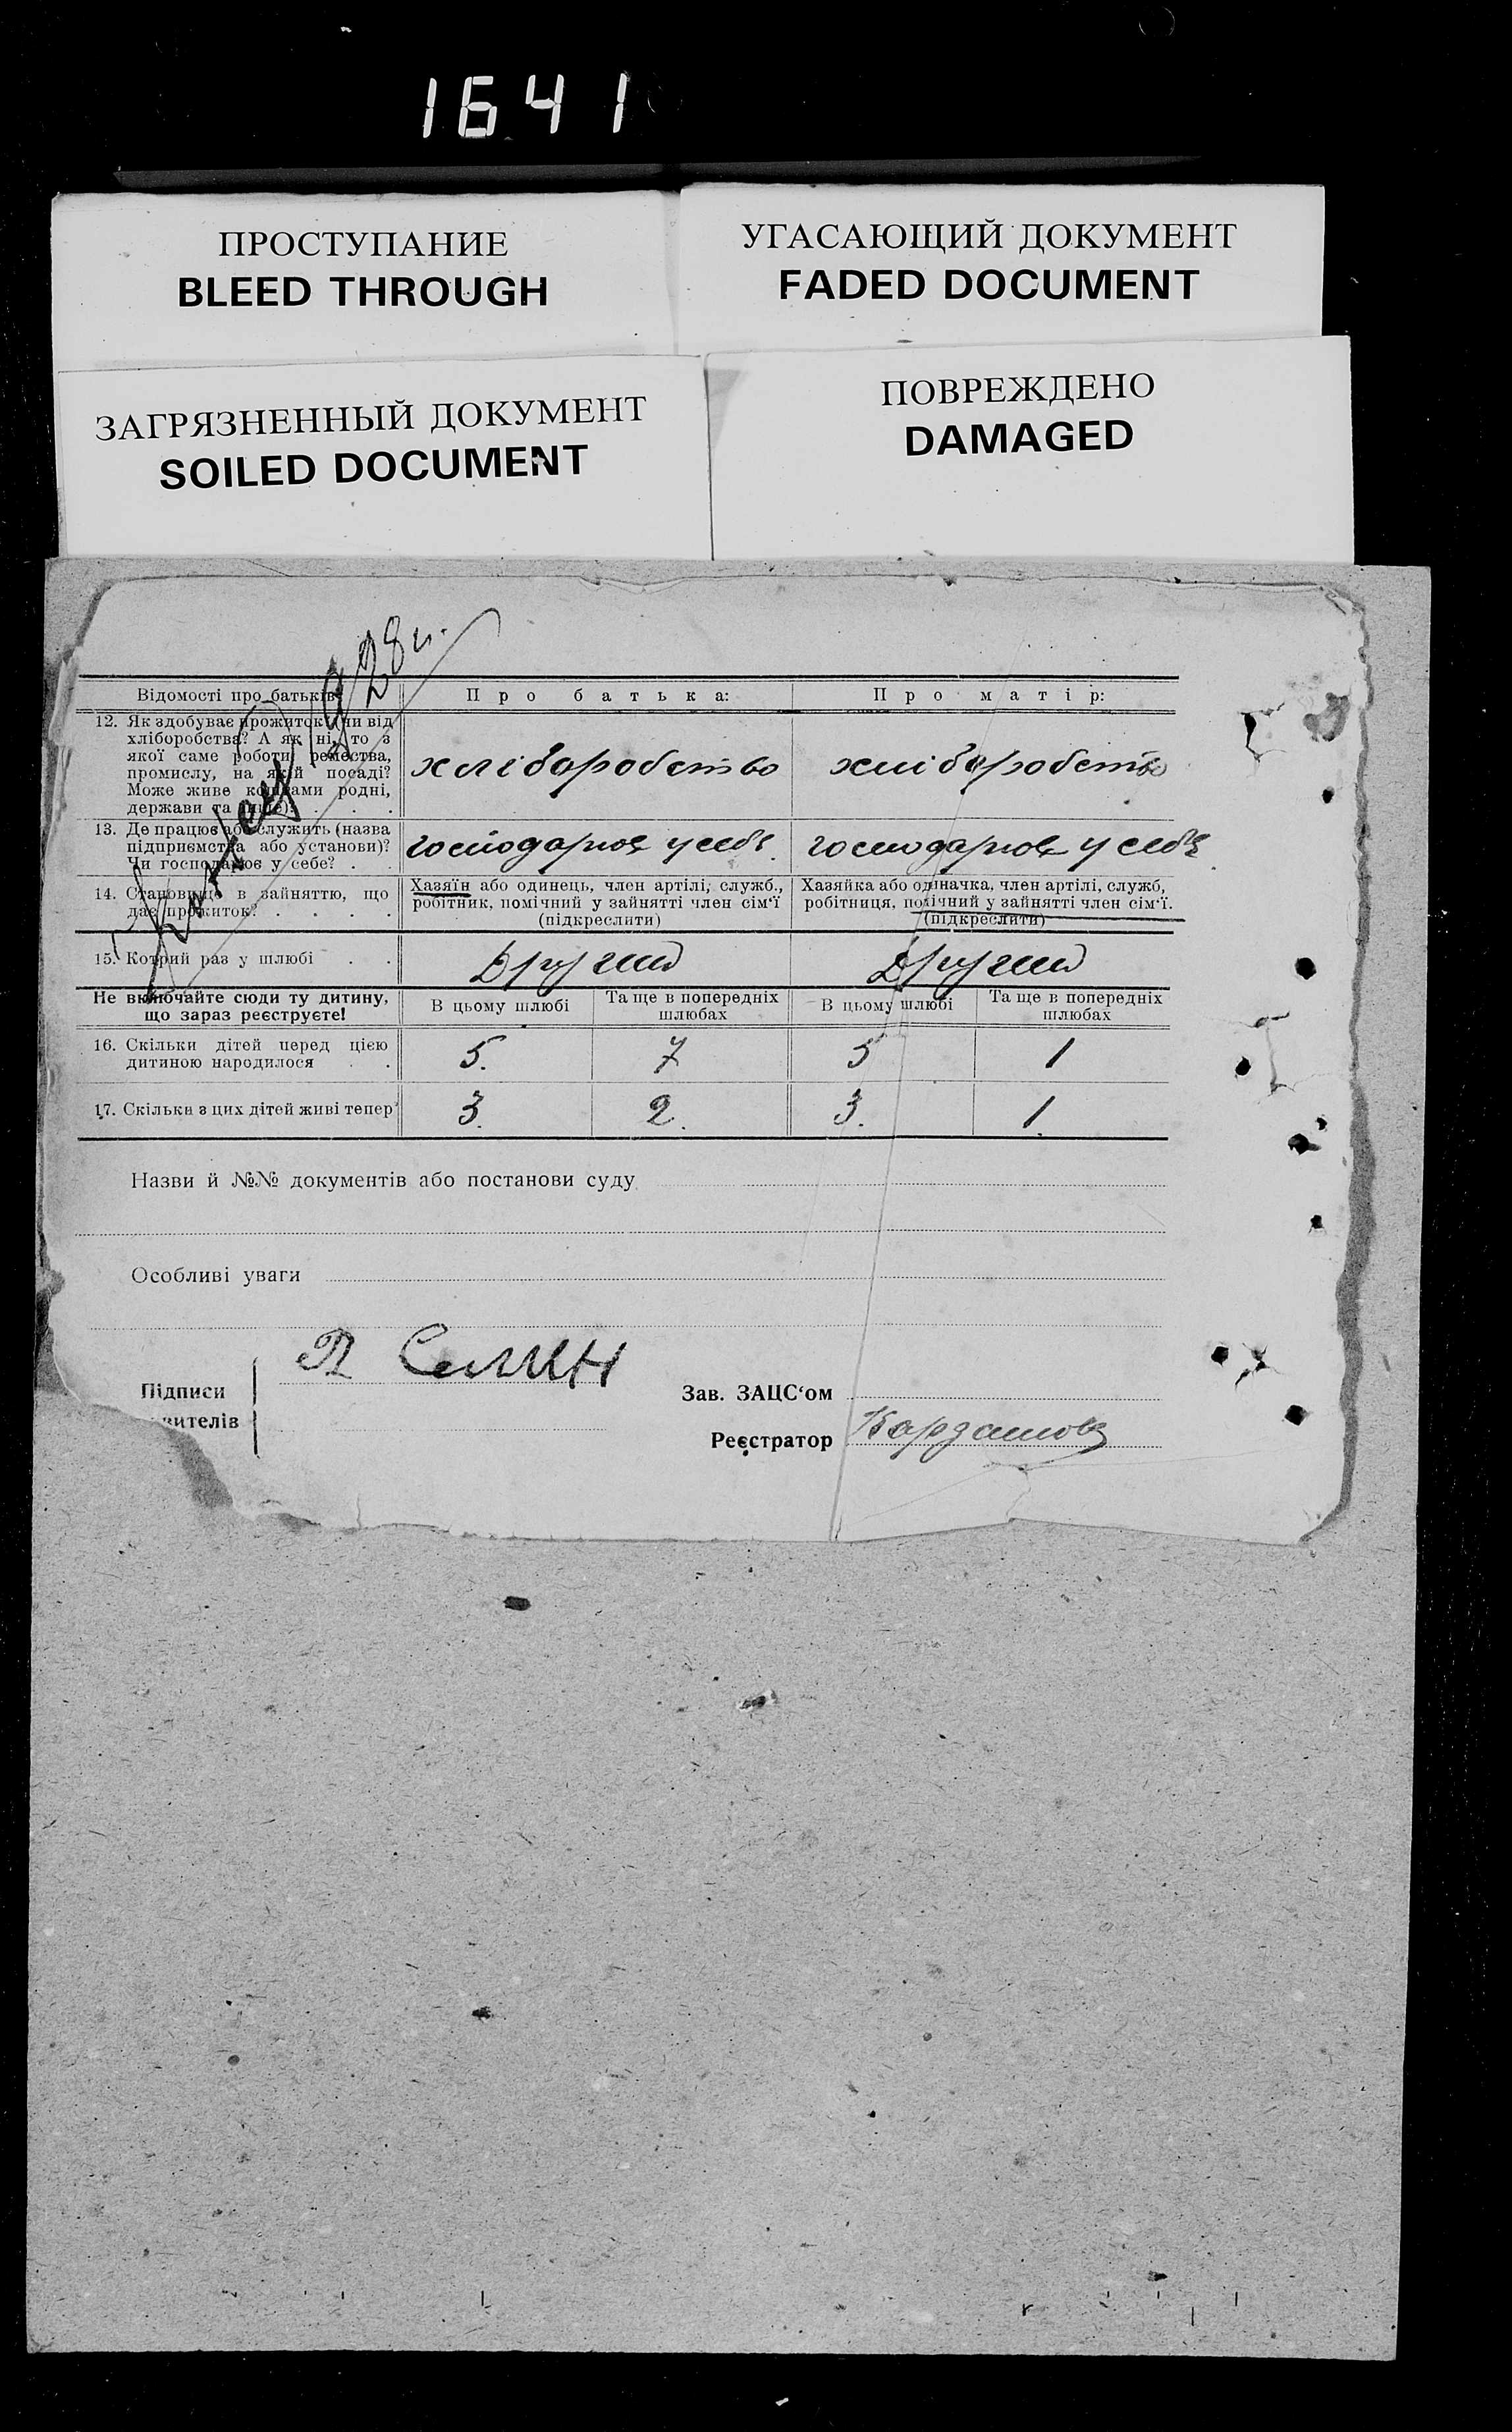 1641
ПРОСТУПАНИЕ
BLEED THROUGH
УГАСАЮЩИЙ ДОКУМЕНТ
FADED DOCUMENT
ЗАГРЯЗНЕННЫЙ ДОКУМЕНТ
SOILED DOCUMENT
ПОВРЕЖДЕНО
DAMAGED
1928
Відомості про батьків
Про батька:
Про матір:
12. Як здобуває прожиток (чи від
хліборобства? А як ні, то з
якої саме роботи, ремества,
промислу, на якій посаді?
Може живе коштами родні,
держави та інше). . . .
хліборобство
хліборобство
13. Де працює або служить (назва
підприємства або установи)?
Чи господарює у себе? . .
господарює у себе
господарює у себе
14. Становище в зайняттю, що
дає прожиток? . . . .
Хазяїн або одинець, член артілі, служб.,
робітник, помічний у зайнятті член сім'ї
(підкреслити)
Хазяйка або одіначка, член артілі, служб,
робітниця, помічний у зайнятті член сім'ї.
(підкреслити)
15. Котрий раз у шлюбі . .
Другий
Другий
Не включайте сюди ту дитину,
що зараз реєструєте!
В цьому шлюбі
Та ще в попередніх
шлюбах
В цьому шлюбі
Та ще в попередніх
шлюбах
16. Скільки дітей перед цією
дитиною народилося . .
5.
7
5
1
17. Скільки з цих дітей живі тепер
3.
2.
3.
1.
Назви й №№ документів або постанови суду
Особливі уваги
Підписи
вителів
Зав. ЗАЦС'ом
Реєстратор